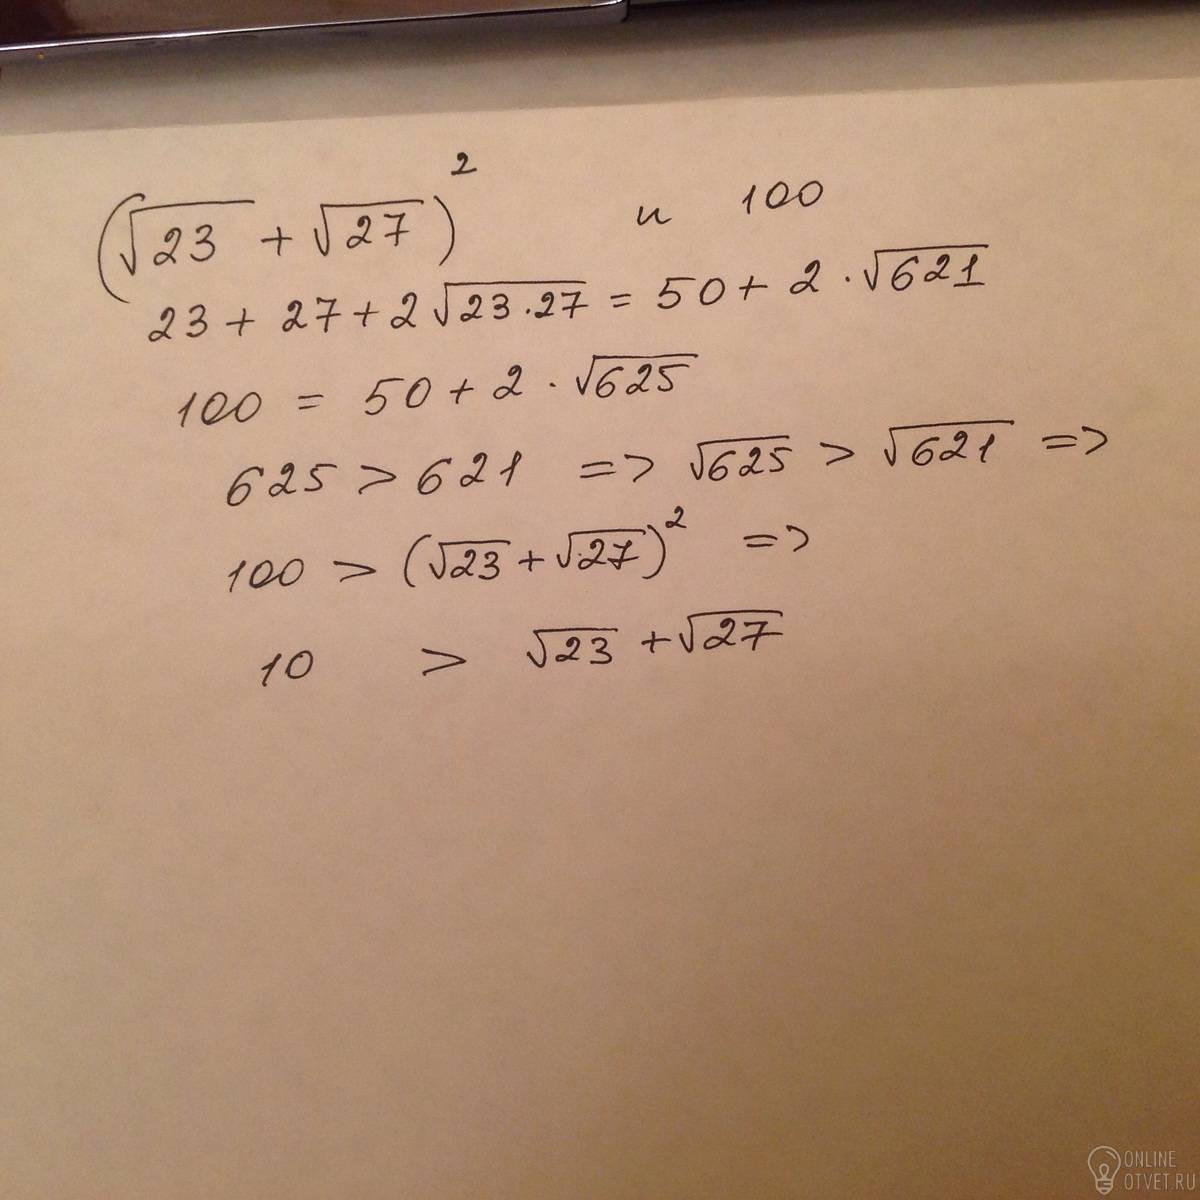 (√23 + √27)² и 100
23 + 27 + 2√23·27 = 50 + 2·√621
100 = 50 + 2·√625
625 > 621 => √625 > √621 =>
100 > (√23 + √27)² =>
10 > √23 + √27
ONLINE
OTVET.RU